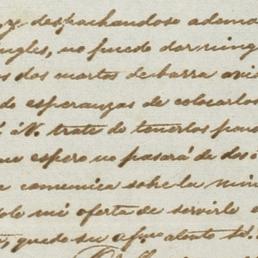 y despachandose adema
ingles, no puedo dar ning
s dos martes de barra
do esperanzas de colocarlos
á V. trate de tenerlos para
ue espero no pasará de dos
e comunica sobre la min
ole mi oferta de servirle
quedo su af.mo atento